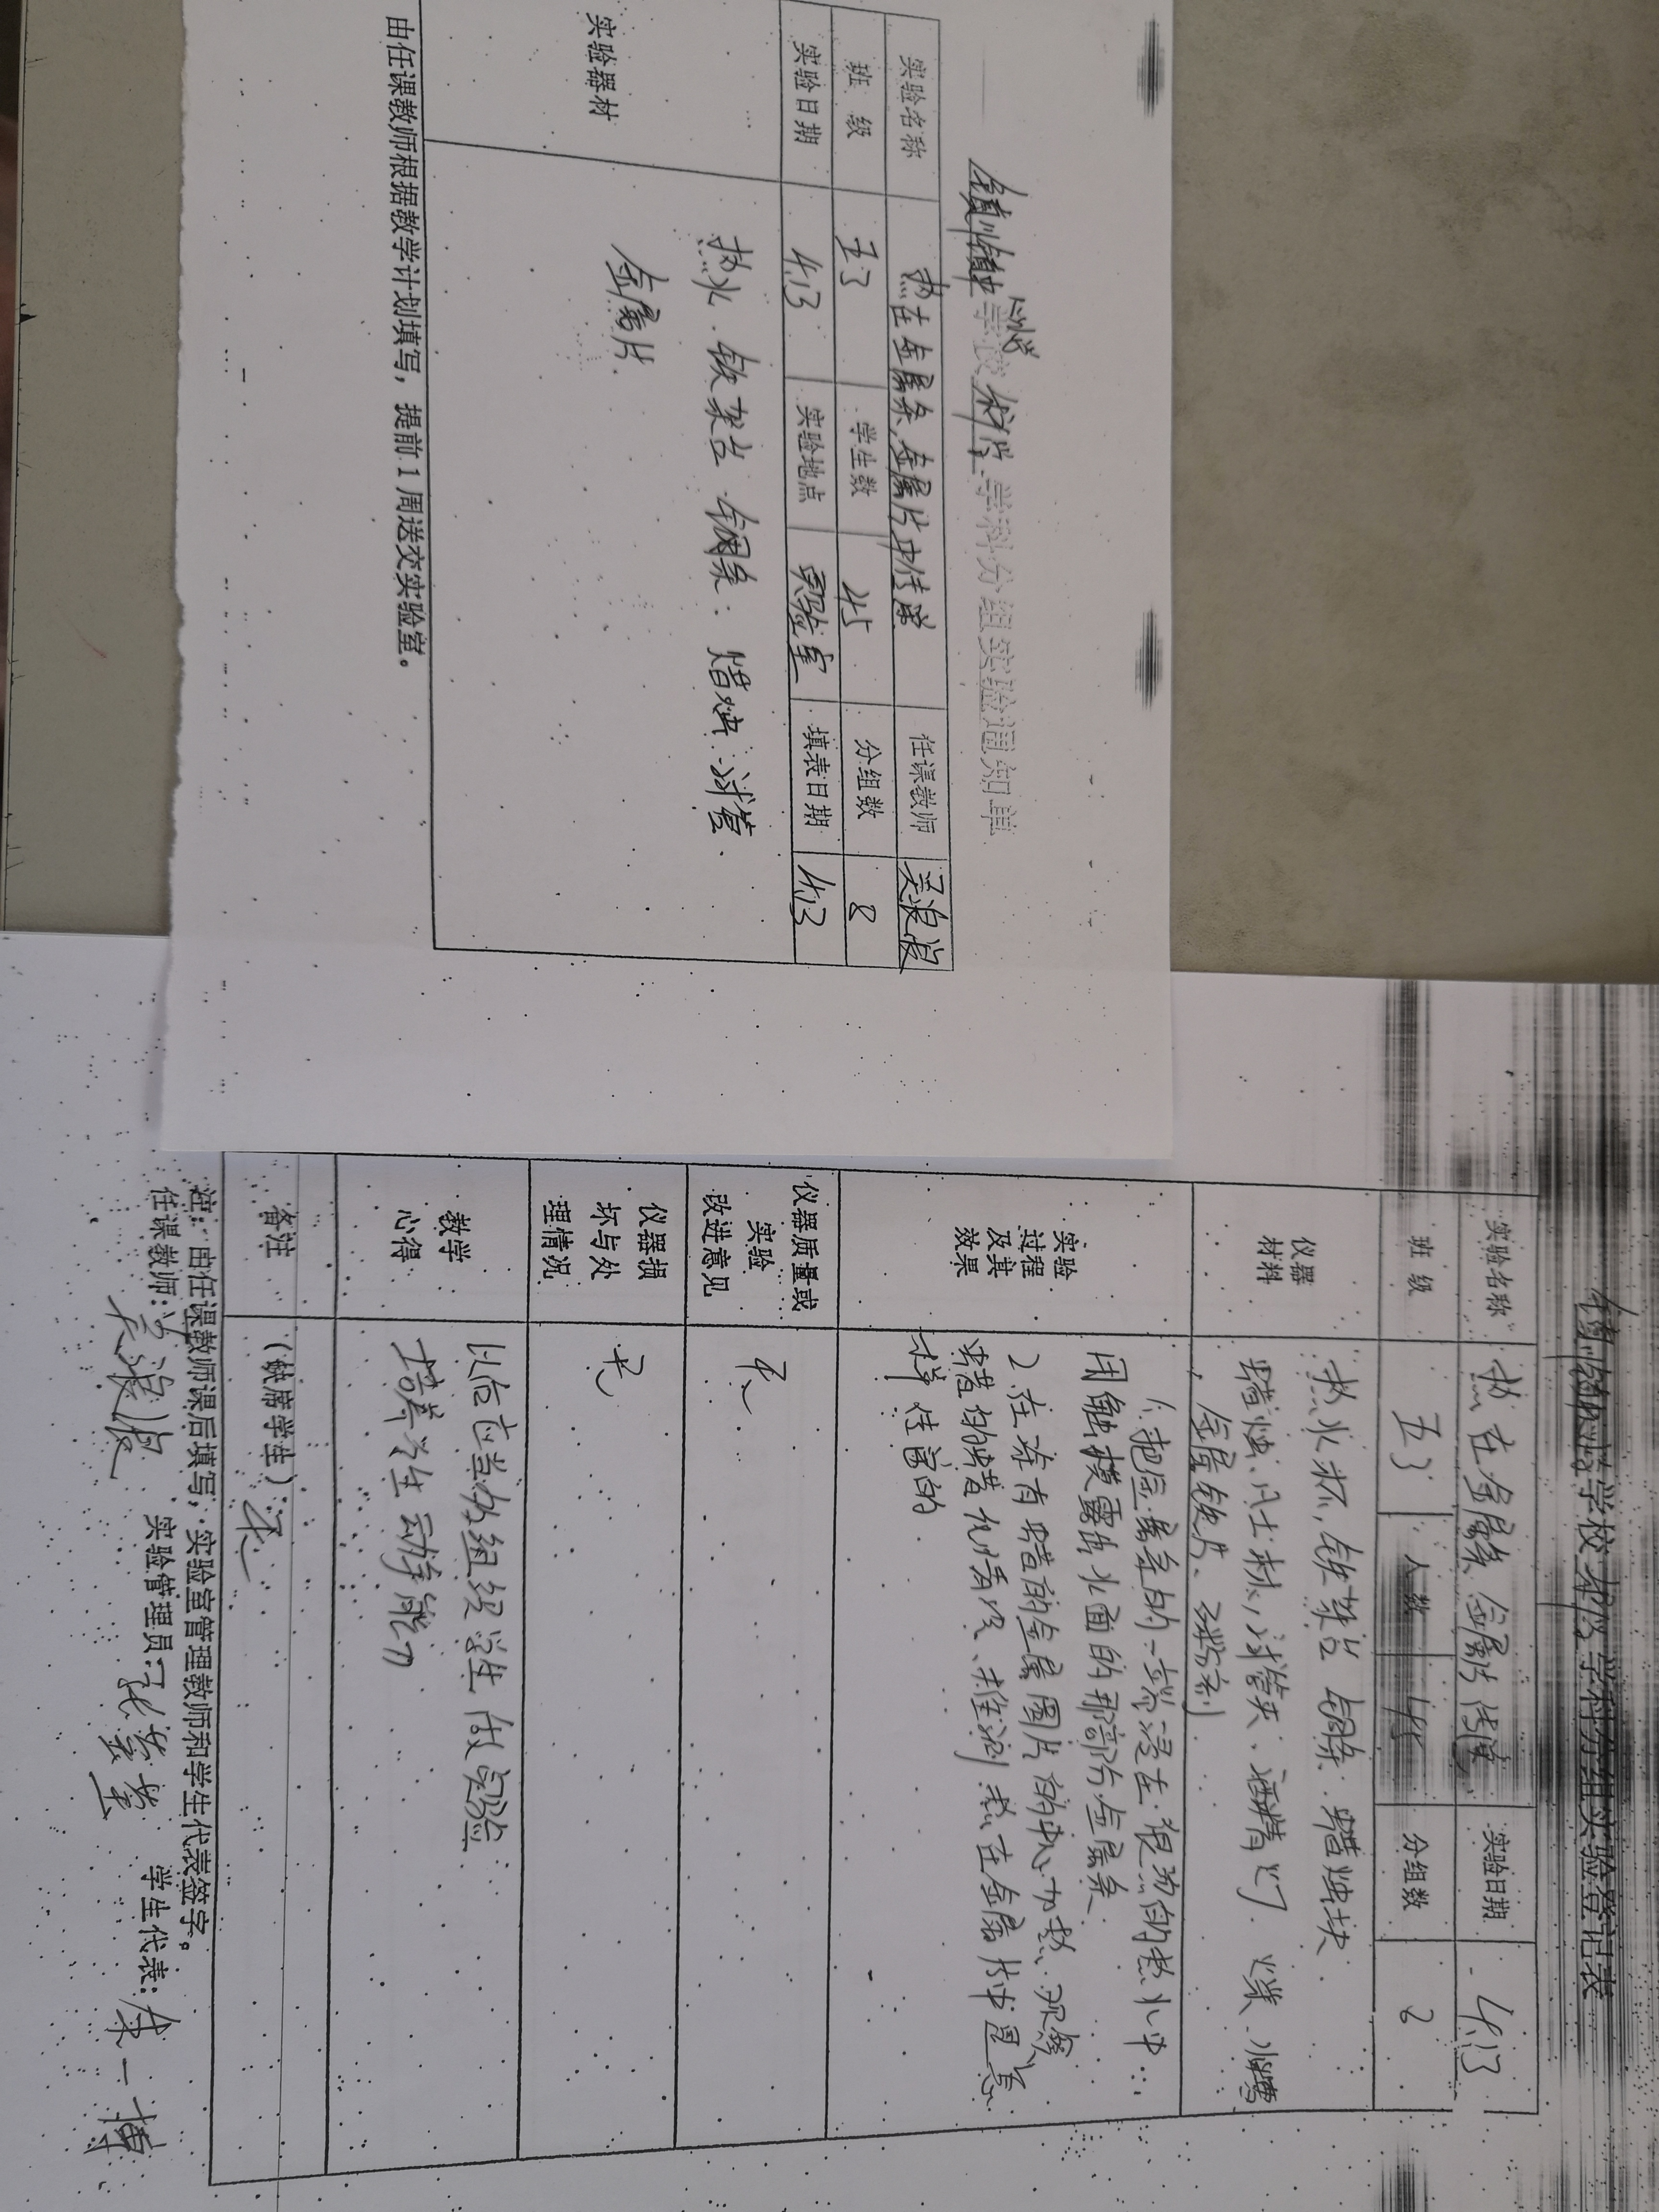 学科分组实验通知单
实验名称 热在金属条、金属片中传导 任课教师 吴浪浪
班 级 五3 学生数 45 分组数 8
实验日期 4.13 实验地点 实验室 填表日期 4.13
实验器材
热水、铁架台 铜条、蜡烛、试管、
金属片.
由任课教师根据教学计划填写，提前1周送交实验室。
学校 学科分组实验登记表
实验名称 热在金属条 金属片传导 实验日期 4.13
班 级 五3 人数 45 分组数 8
仪器
材料
热水杯, 铁架台 铜条 蜡烛块
蜡烛、试管夹、酒精灯 火柴、火蜡
金属铁片、
实验
过程
及其
效果
1、把金属条的一端浸在很烫的热水中
用触摸露出水面的那部分金属条
2、在涂有蜡的金属圆片的中心加热.观察
蜡的熔化情况、推测热在金属片中是怎
样传导的
仪器质量或
实验
改进意见
无
仪器损
坏与处
理情况
无
教学
心得
以后应当多组织学生做实验
培养学生动手能力
备注 (缺席学生): 无
注：由任课教师课后填写，实验室管理教师和学生代表签字。
任课教师: 吴浪浪 实验管理员: 学生代表: 一博